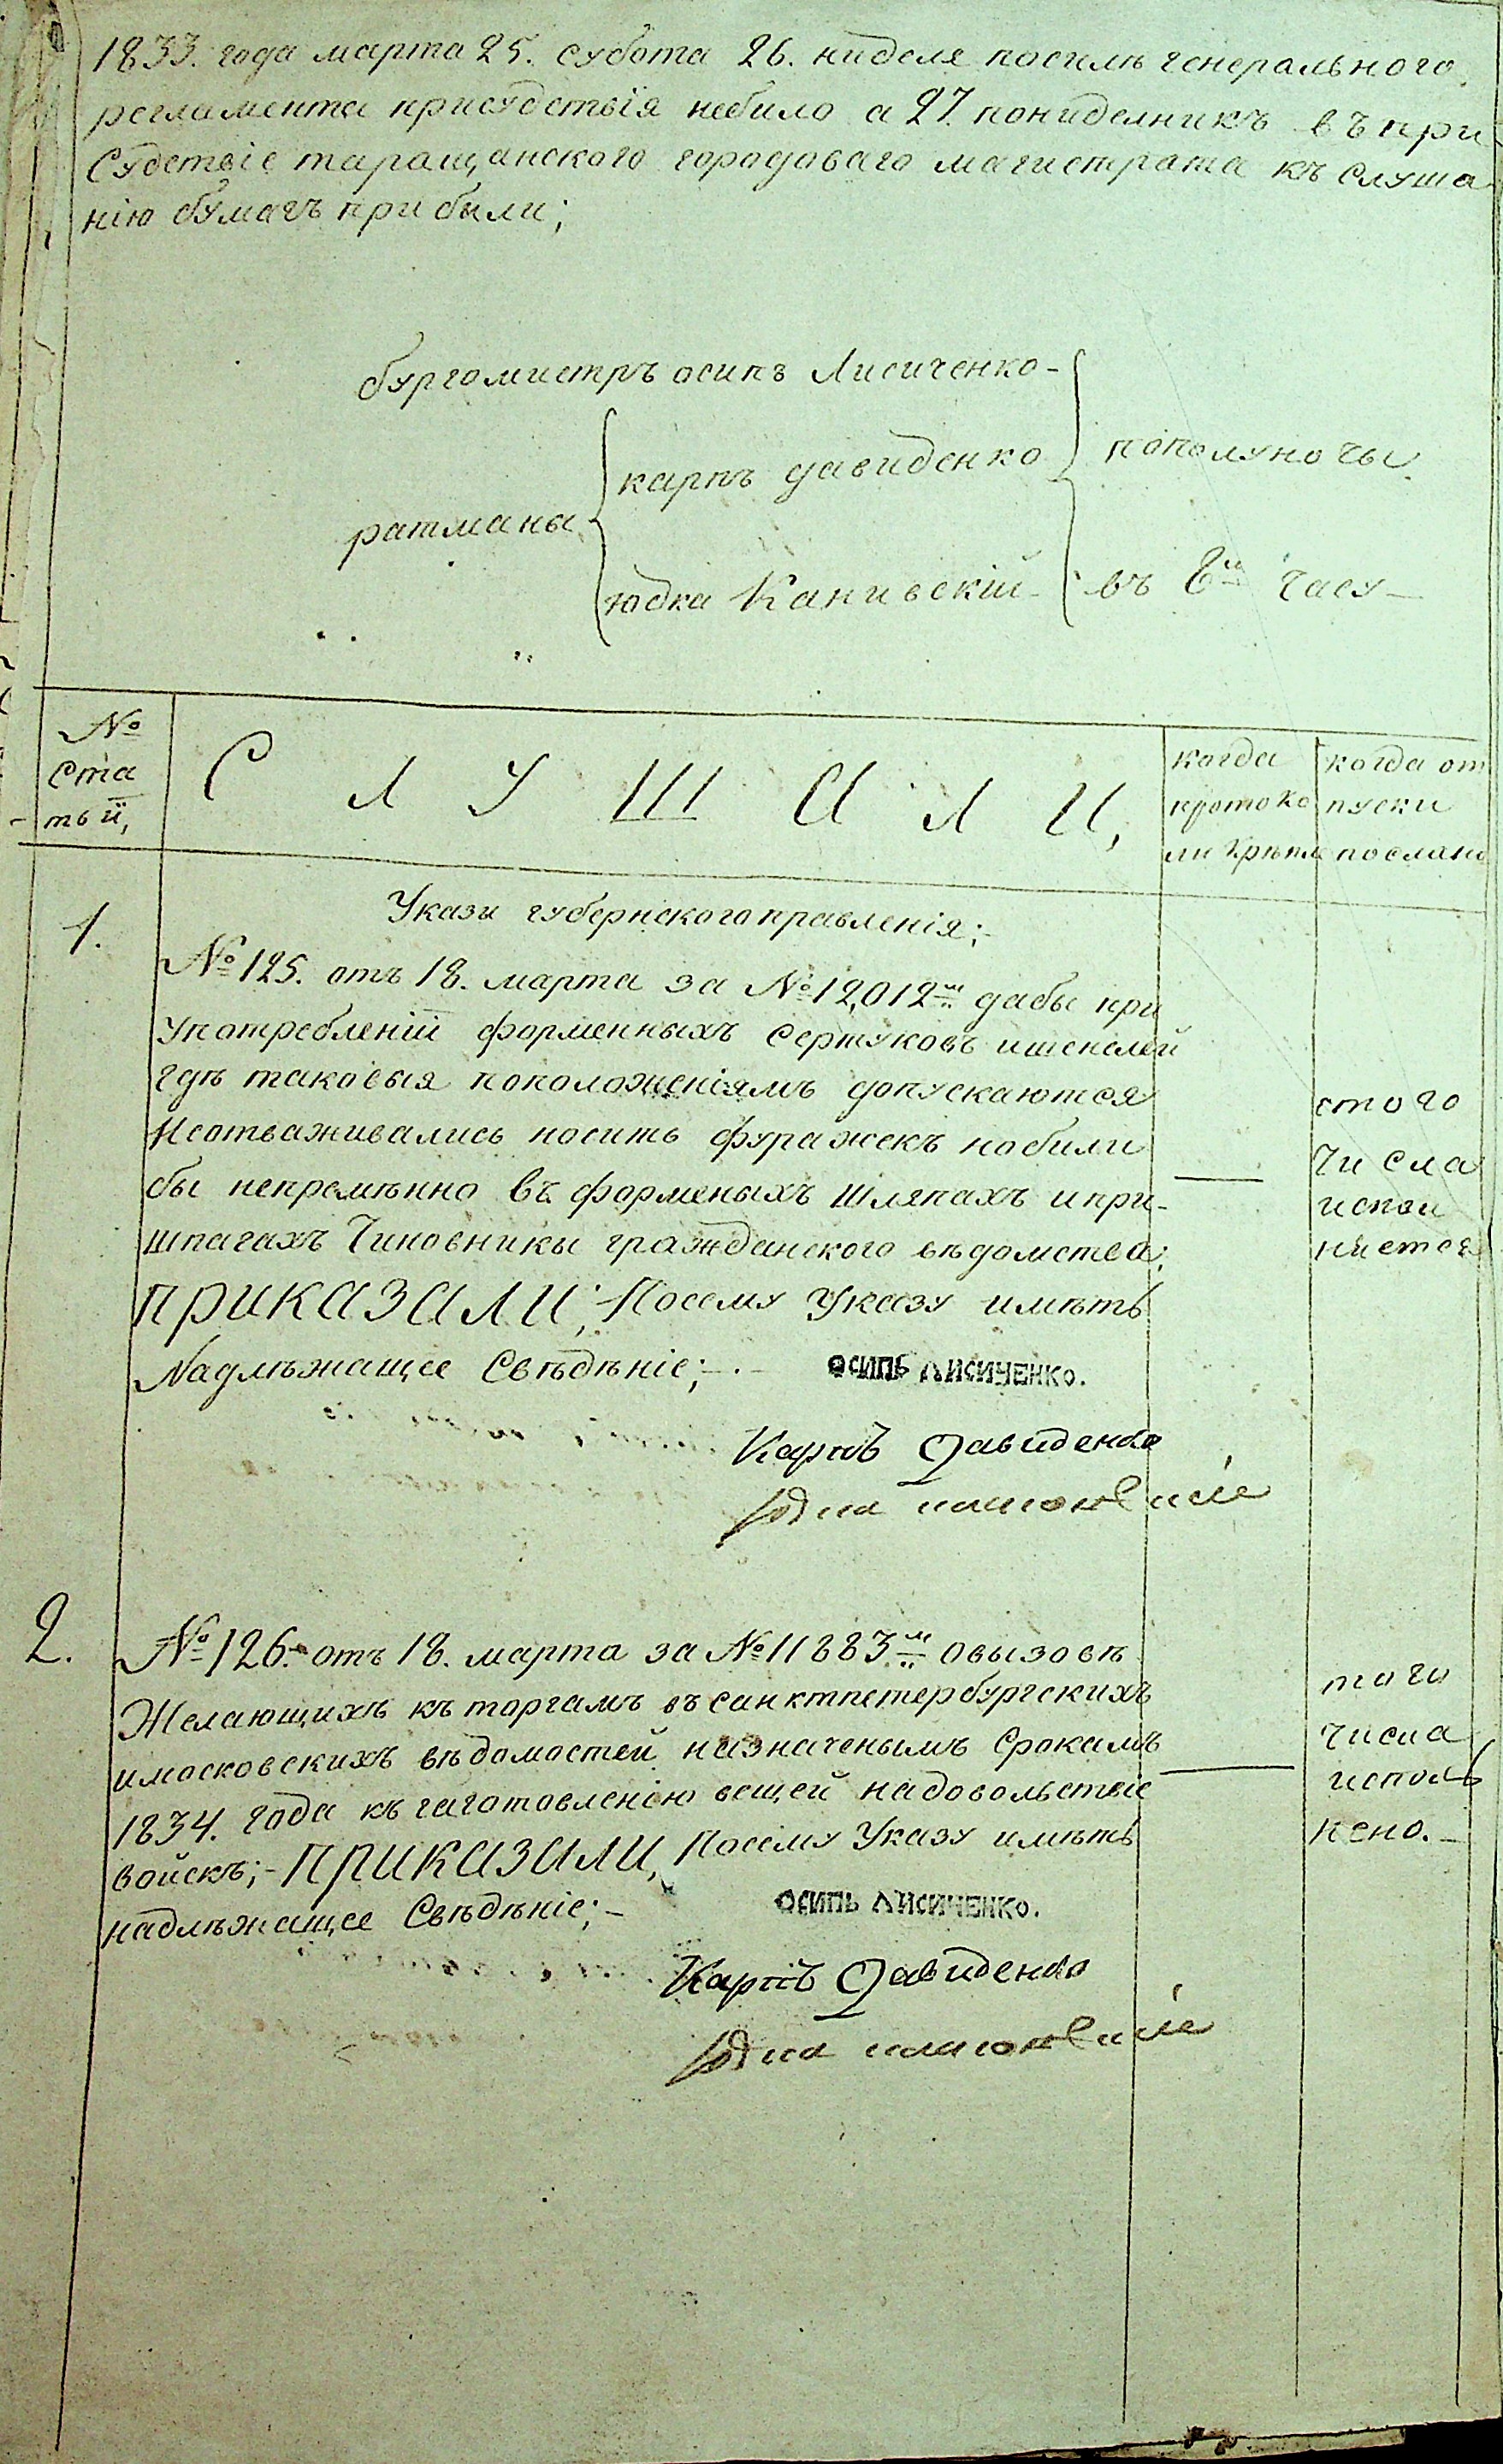 1833. года марта 25. субота 26. ниделя посилѣ генерального
регламента присудствія небило а 27. пониделникъ въ при
Судствіе таращанского городоваго магистрата къ слуша
нію бумагъ прибыли;
бургомистръ осипъ Лисиченко-
карпъ давиденко
пополуночы
ратманы
юдка Канивскій
въ 8м часу
№
Ста
тьй,
С Л У Ш А Л И,
когда
протоко
ли
когда от
пуски
послани
1.
Указы губернского правленія;-
№ 125. отъ 18. марта за № 12,012м дабы при
употребленій форменныхъ сертуковъ ишенелей
гдѣ таковыя поположеніямъ допускаются
Неотваживались носить фуражекъ нобили
бы непремѣнно въ форменыхъ шляпахъ ипри-
шпагахъ Чиновники гражданского вѣдомства;
ПРИКАЗАЛИ; Посему Указу имѣть
Надлѣжащее Свѣдѣніе;-.-
стого
числа
испол
нйется
Осипъ Лисиченко.
Карпъ Давиденко
2.
№ 126. отъ 18. марта за № 11883м овызовѣ
Желающихъ къ торгамъ въ санктпетербургскихъ
имосковскихъ вѣдомостей назначенымъ Срокамъ
1834. года къ гаготовленію вещей надовольствіе
войскъ;- ПРИКАЗАЛИ, Посему Указу имѣть
надлѣжащее Свѣдѣніе;-
того
числа
исполь
нено.-
Осипъ Лисиченко.
Карпъ Давиденко